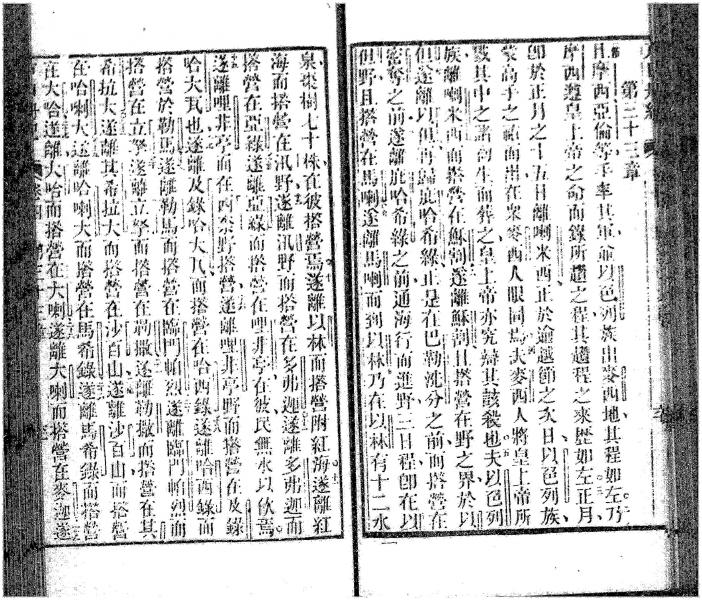 第三十三章
且摩西亞倫等手率其軍侖以色列族出麥西地其程如左乃
摩西遵皇上帝之命而錄所遵之程其遵程之來歷如左正月
卽於正月之十五日離喇米西正於逾越節之次日以色列族
蒙高手之祐而出在眾麥西人眼同焉夫麥西人將皇上帝所
戮其中之諸初生而葬之皇上帝亦究辯其該殺也夫以色列
族離喇米西而搭營在穌割遂離穌割且搭營在野之界於以
但遂離以但再歸旅哈希綠止是在巴勒洗分之前而搭營在
密奪之前遂離旅哈希綠之前通海行而進野三日程卽在以
但野且搭營在馬喇遂離馬喇而到以林乃在以林有十二水
泉棗樹七十株在彼搭營焉遂離以林而搭營附紅海遂離紅
海而搭營在汛野遂離汛野而搭營在多弗迦遂離多弗迦而
搭營在亞綠遂離亞綠而搭營在哩非亭在彼民無水以飲焉
遂離哩非亭而在西奈野搭營遂離哩非亭野而搭營在及錄
哈大瓦也遂離及錄哈大瓦而搭營在哈西錄遂離哈西錄而
搭營於勒馬遂離勒馬而搭營在臨門帕烈遂離臨門帕烈而
搭營在立拏遂離立拏而搭營在勒撒遂離勒撒而搭營在其
希拉大遂離其希拉大而搭營在沙百山遂離沙百山而搭營
在哈喇大遂離哈喇大而搭營在馬希錄遂離馬希錄而搭營
在大哈遂離大哈而搭營在大喇遂離大喇而搭營在麥迦遂